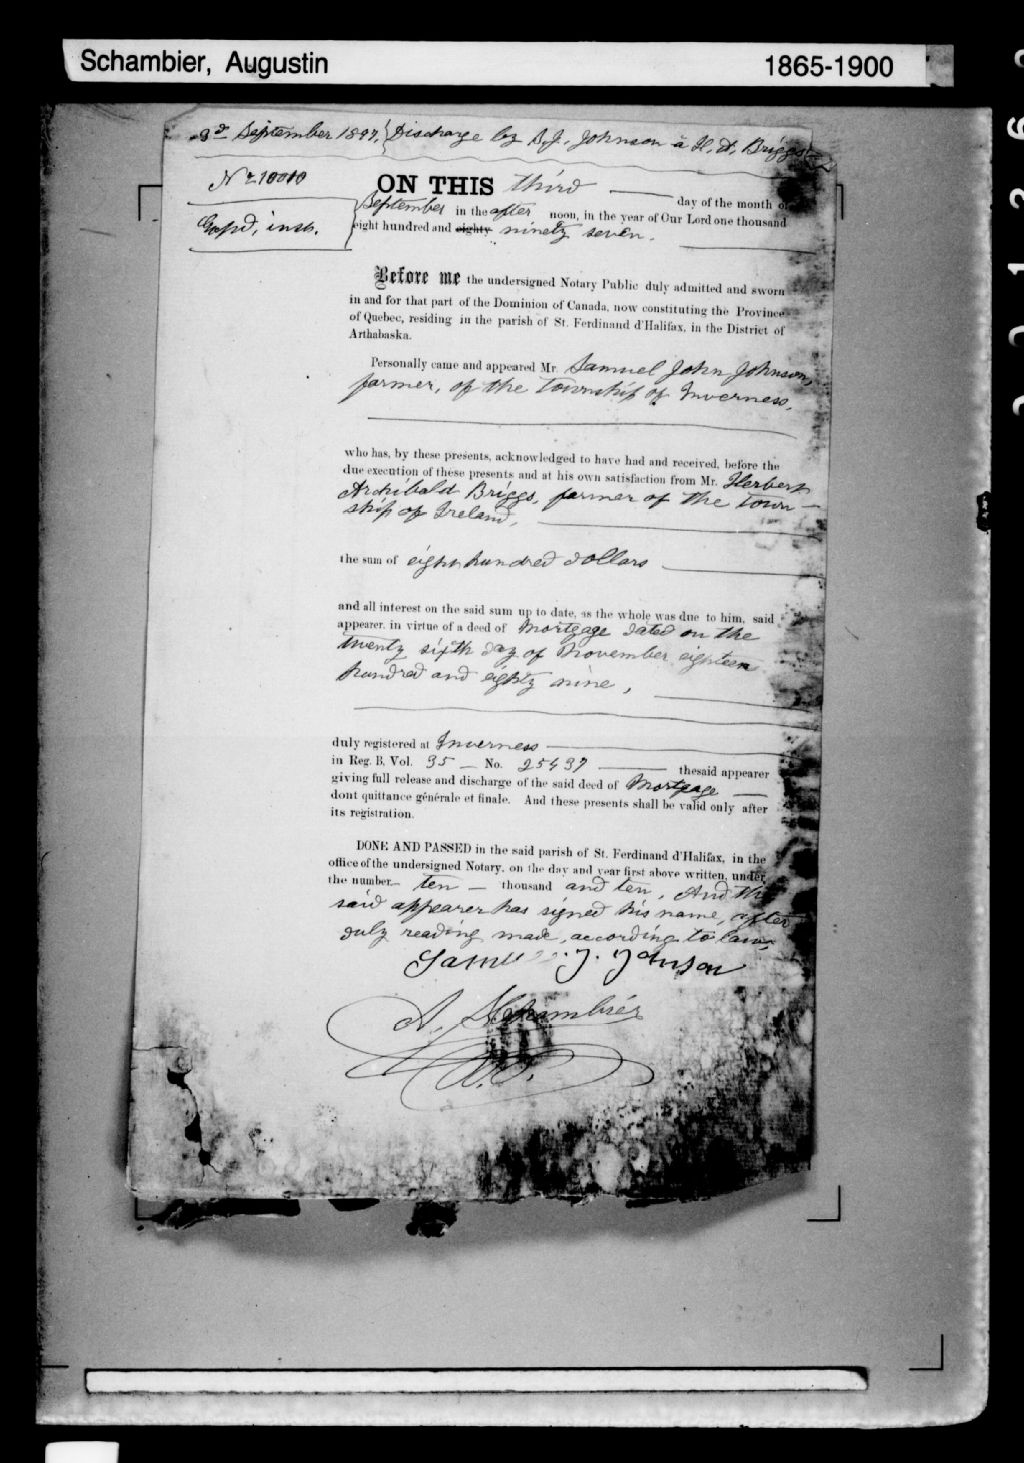 Schambier, Augustin
1865-1900
3d September 1897, Discharge by S. J. Johnson à H. A. Briggs
No 10010
ON THIS third day of the month of
September in the after noon, in the year of Our Lord one thousand
eight hundred and eighty ninety seven.
Before me the undersigned Notary Public duly admitted and sworn
in and for that part of the Dominion of Canada, now constituting the Province
of Quebec, residing in the parish of St. Ferdinand d'Halifax, in the District of
Arthabaska.
Personally came and appeared Mr. Samuel John Johnson,
farmer, of the township of Inverness,
who has, by these presents, acknowledged to have had and received, before the
due execution of these presents and at his own satisfaction from Mr. Herbert
Archibald Briggs, farmer of the town-
ship of Ireland,
the sum of eight hundred dollars
and all interest on the said sum up to date, as the whole was due to him, said
appearer, in virtue of a deed of Mortgage dated on the
twenty sixth day of November eighteen
hundred and eighty nine,
duly registered at Inverness
in Reg. B. Vol. 35 — No. 25437 — thesaid appearer
giving full release and discharge of the said deed of Mortgage —
dont quittance générale et finale. And these presents shall be valid only after
its registration.
DONE AND PASSED in the said parish of St. Ferdinand d'Halifax, in the
office of the undersigned Notary, on the day and year first above written, under
the number ten — thousand and ten. And the
said appearer has signed his name, after
duly reading made, according to law.
Samuel J. Johnson
A. Schambier
N.P.